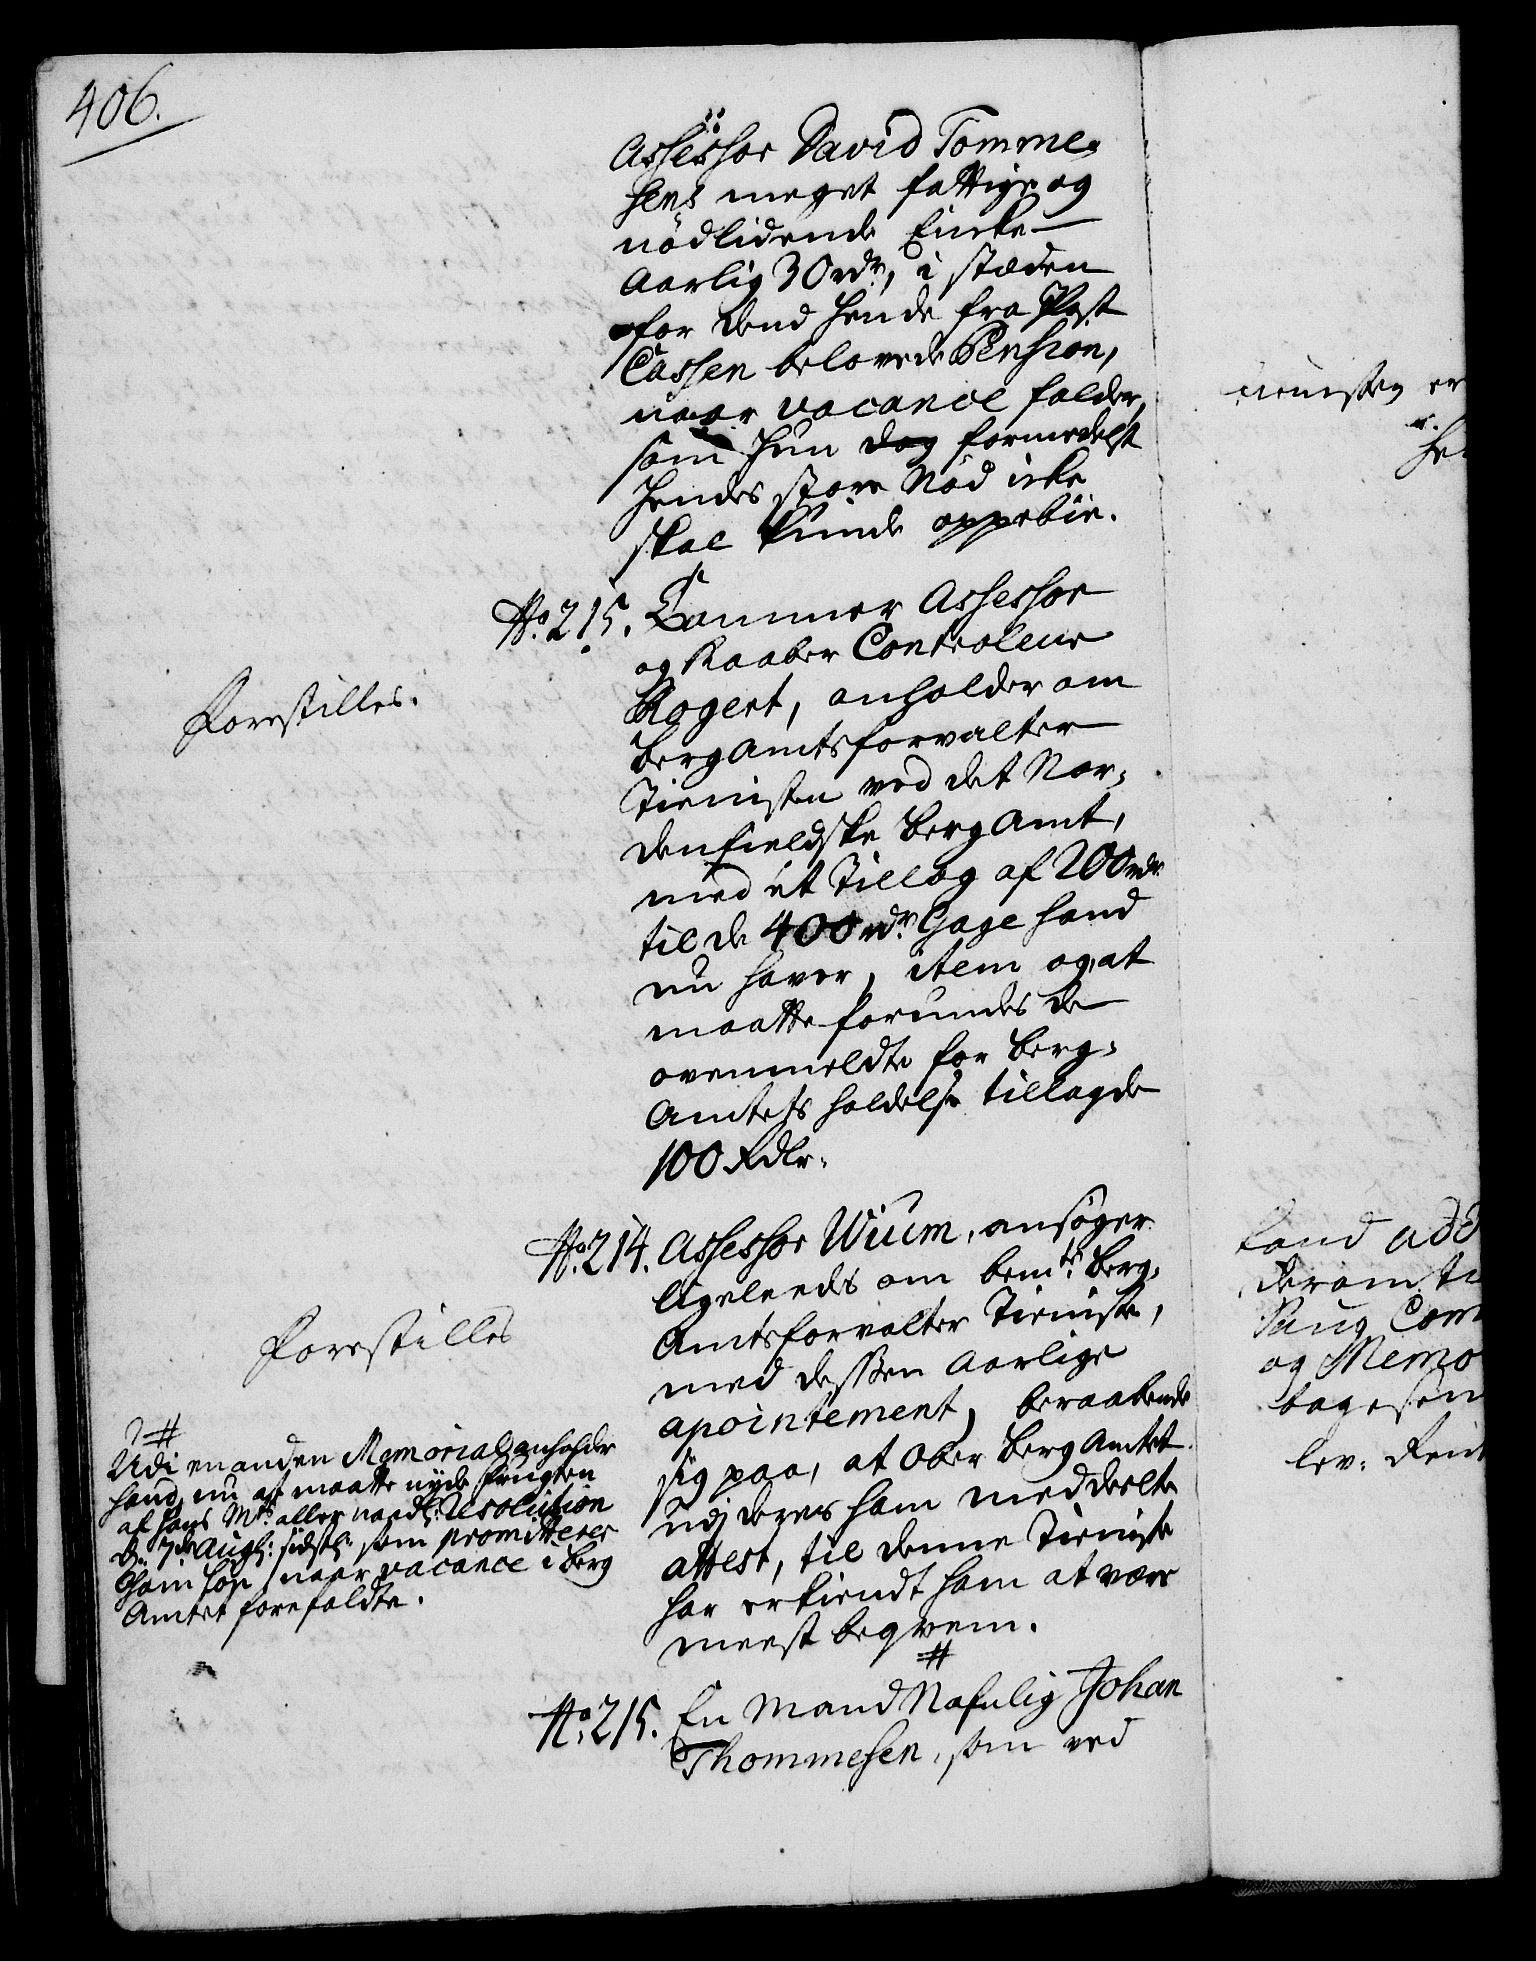 406.
Assessor David Tomme-
sens meget fattige og
nödlidende Encke
Aarlig 30 rdr, i stæden
for dend hende fra Post
Cassen belovede Pension,
naar vacance falder,
som hun dog formedelst
hendes store Nöd icke
skal kunde oppebie.
No. 215. Cammer Assessor
og Kaaber Controleur
Rogert, anholder om
BergAmtsforvalter
Tienisten ved det Nor-
denfieldske BergAmt,
med et Tillæg af 200 rdr
til de 400 rdr Gage hand
nu haver, item og, at
maatte forundes de
ovenmeldte for Berg-
Amtets holdelse tillagde
100 Rdlr.
Forestilles.
No. 214. Assessor Wium, ansöger
ligeleedes om bemte Berg-
Amtsforvalter Tieniste,
med dessen Aarlige
apointement, beraabende
sig paa, at Ober BergAmtet
udj deres ham meddeelte
attest, til denne Tieniste
har erkiendt ham at være
meest beqvem.
#
Forestilles
#
Udi en anden Memorial anholder
hand nu at maatte nyde frugten
af hans Mts aller naadt: Resolution
d. 7de Augt: sidstl: som promitterer
ham hoc naar vacance i Berg
Amtet forefaldte.
No. 215. En Mand Nafnlig Johan
Thommesen, som ved
tienisten er
hand udd
derom ti
Paug Com
og Memo
bogesen
lev: Rent